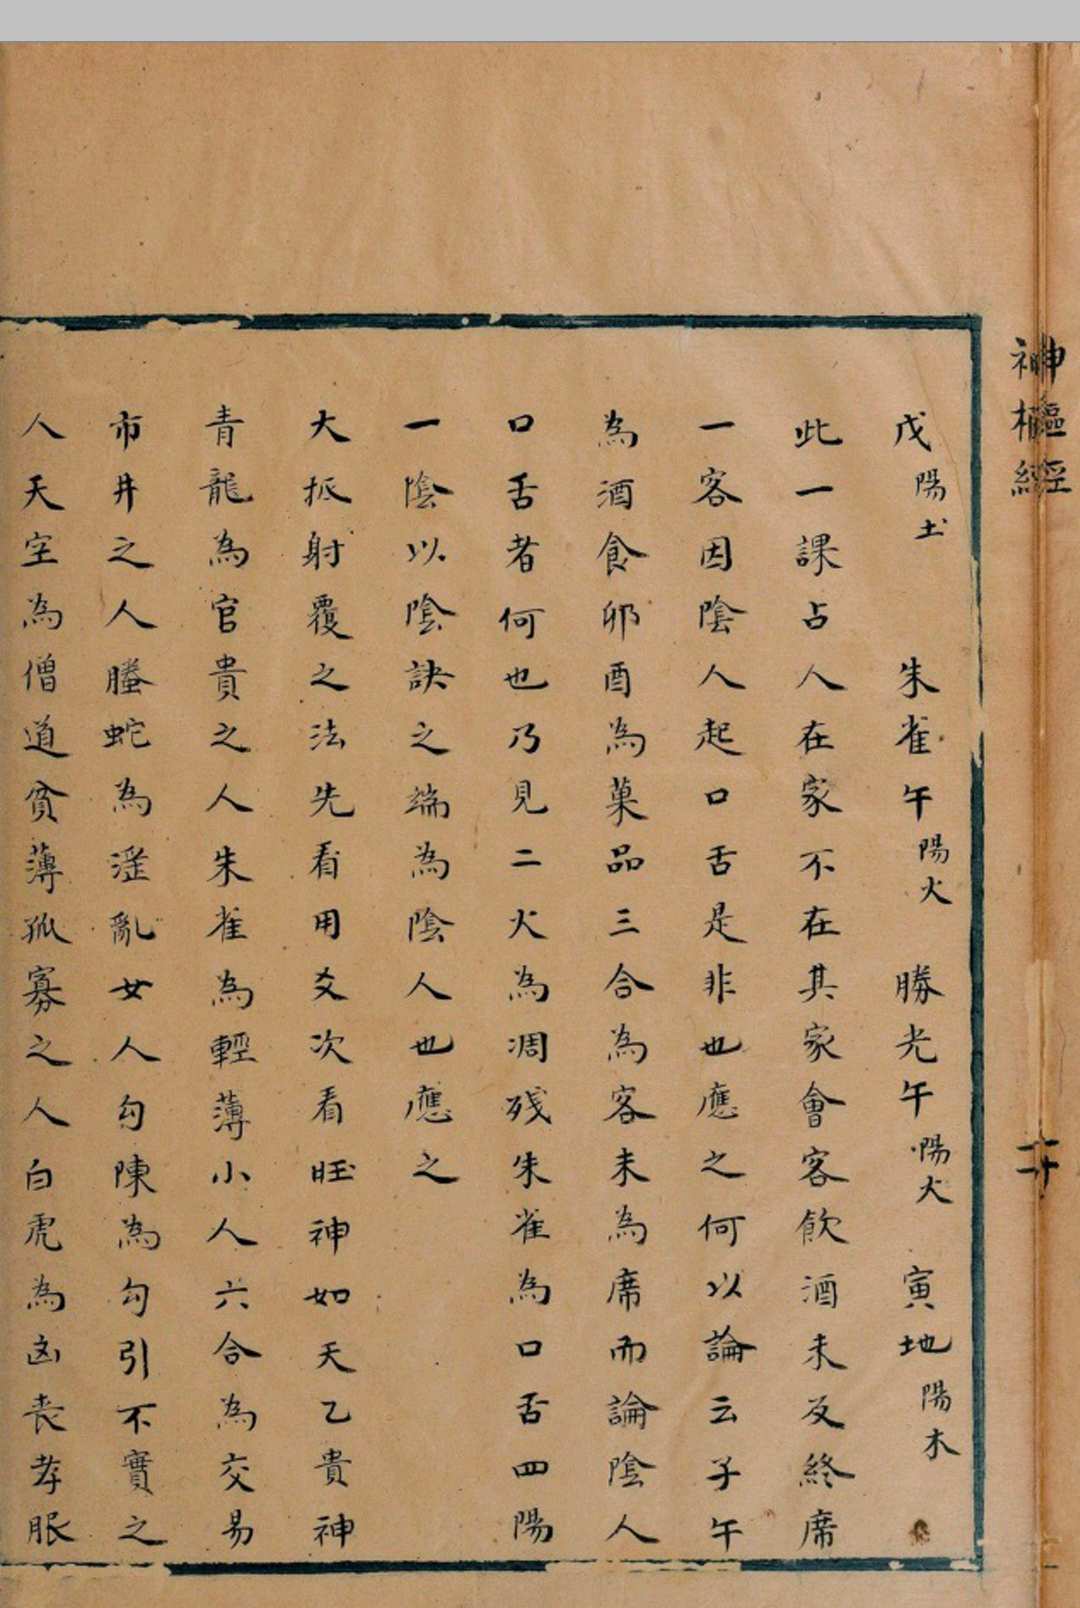 神樞經
二十
戊陽土　朱雀午陽火　勝光午陽火　寅地陽木
此一課占人在家不在其家會客飲酒未及終席
一客因陰人起口舌是非也應之何以論云子午
為酒食卯酉為菓品三合為客未為席而論陰人
口舌者何也乃見二火為凋殘朱雀為口舌四陽
一陰以陰訣之端為陰人也應之
大抵射覆之法先看用爻次看旺神如天乙貴神
青龍為官貴之人朱雀為輕薄小人六合為交易
市井之人螣蛇為淫亂女人勾陳為勾引不實之
人天空為僧道貧薄孤寡之人白虎為凶喪孝服